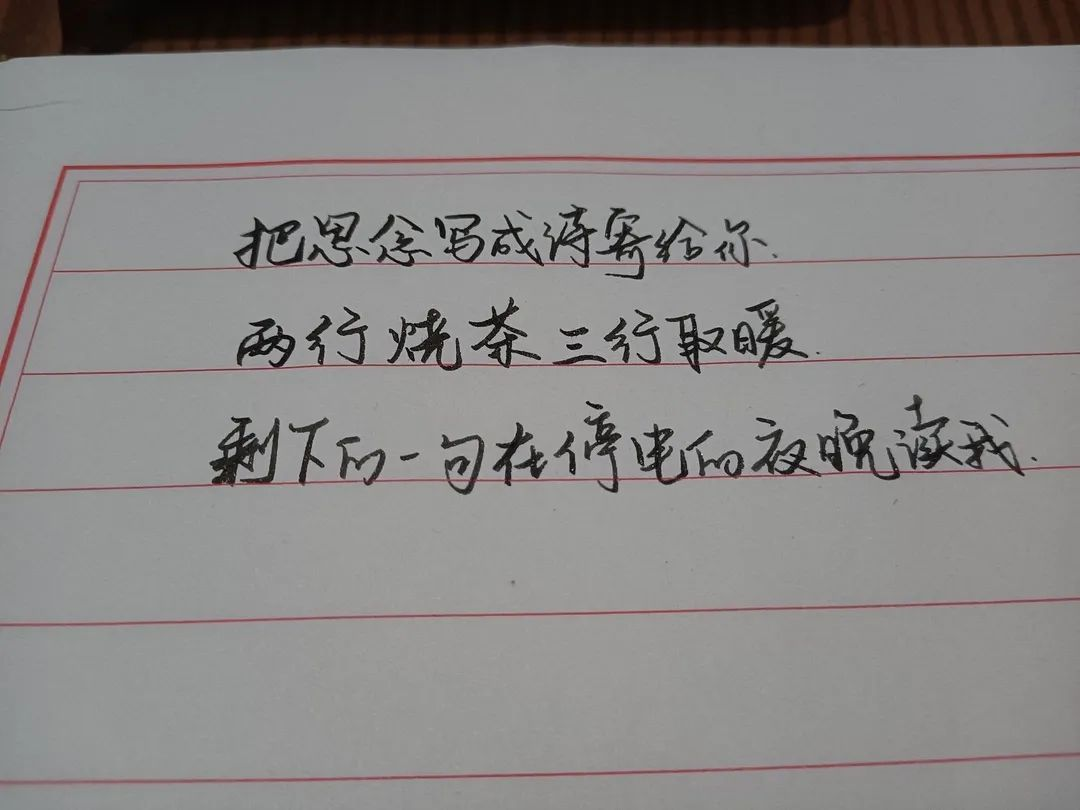 把思念写成诗寄给你.
两行烧茶三行取暖.
剩下的一句在停电的夜晚读我.